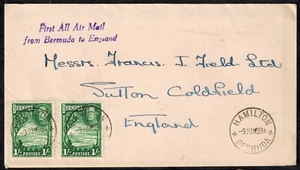 First All Air Mail
from Bermuda to England
Messrs. Francis J. Field Ltd.
Sutton Coldfield
England
HAMILTON
BERMUDA
BERMUDA BERMUDA
1/- POSTAGE 1/- 1/- POSTAGE 1/-